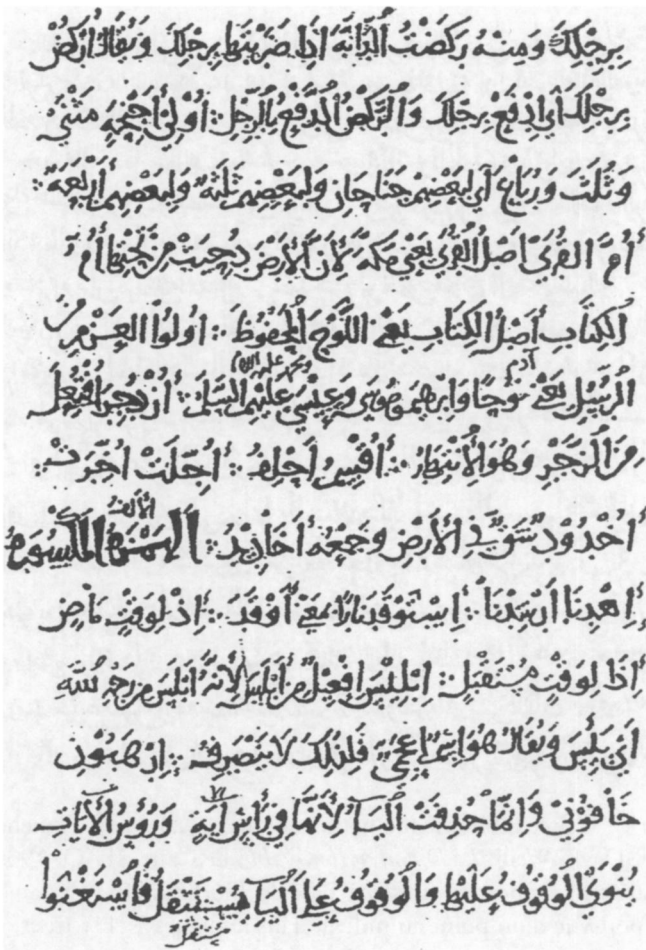 بِرِجْلِكَ وَمِنْهُ رَكَضْتُ ٱلدَّابَّةَ اذا ضَرَبْتَهَا بِرِجْلِكَ وَيُقَالُ ارْكُضْ
بِرِجْلِكَ أَى ادْفَعْ بِرِجْلِكَ وَٱلرَّكْضُ ٱلدَّفْعُ بِٱلرِّجْلِ ∴ أُوْلِىٓ أَجْنِحَةٍ مَثْنَى
وَثُلَثَ وَرُبَاعَ أى لِبَعْضِهِمْ جَنَاحَانِ وَلِبَعْضِهِمْ ثَلَثَة وَلِبَعْضِهِم أَرْبَعَة ∴
أُمّ القُرَى أَصْلُ ٱلْقُرَى يَعْنِى مَكَّةَ لِأَنَّ ٱلْأَرْضَ دُحِيَتْ مِن تَحْتِهَا أُمُّ
ٱلْكِتَابِ أَصْلُ ٱلْكِتَابِ يَعْنِى اللَّوْحَ ٱلْمَحْفُوظَ ∴ اولُوا ٱلْعَزْمِ مِنَ
ٱلرُّسُلِ يَعْنِى آدم نُوحًا وَابْرَهِيمَ وَمُوسَى وَعِيسَى وَمحمد عَلَيْهِمُ السَّلَم ∴ ٱزْدُجِرَ افْتُعِلَ
مِنَ ٱلزَّجْرِ وَهُوَ ٱلْأِنْتِهَارُ ∴ أُقْسِمُ أَحْلِفُ ∴ أُجِّلَتْ أُخِّرَتْ ∴
أُخْدُودٌ شَقٌّ فِى ٱلْأَرْضِ وَجَمْعُهُ أَخَادِيدُ ∴ الألف الهمزة المكسورة
إِهْدِنَا أَرْشِدْنَا ∴ إِسْتَوْقَدَ نَارًا بِمَعْنَى أَوْقَدَ ∴ إِذْ لِوَقْتٍ مَاضٍ
إِذَا لِوَقْتٍ مُسْتَقْبِلٍ ∴ إِبْلِيسَ إِفْعِيلَ مِنْ أَبْلَسَ لِأَنَّهُ أَبْلَسَ مِنْ رَحْمَةِ اللَّهِ
أَىْ يَئِسَ وَيُقَالُ هُوَ اسْمٌ أَعْجَمِىٌّ فَلِذَلِكَ لَا يَنْصَرِفُ ∴ إِرْهَبُونِ
خَافُونِى وَإِنَّمَا حُذِفَتِ ٱلْيَآءُ لأَنَّهَا فِى رَأْسِ آيَةٍ وَرُؤُسُ ٱلْأيَاتِ
يُنْوَى ٱلْوُقُوفُ عَلَيْهَا وَٱلْوُقُوفُ عَلَى ٱلْيَآءِ يُسْتَثْقَلُ فَاسْتَغْنَوْا
يستثقل